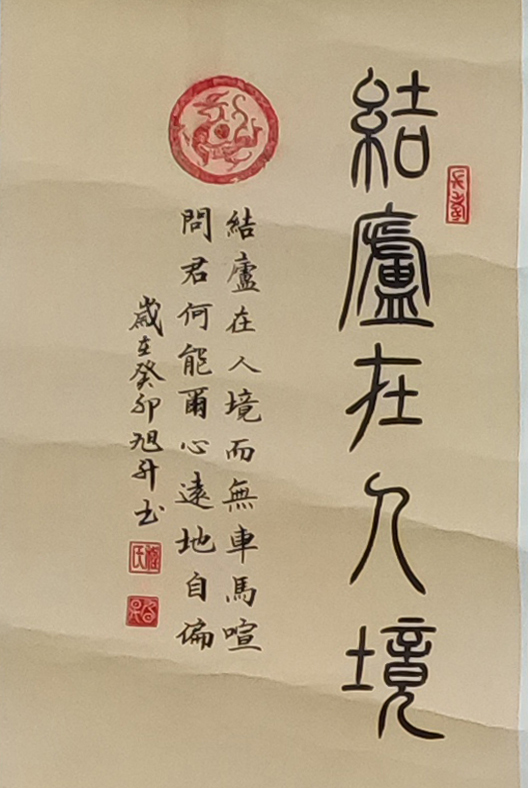 結廬在人境
結廬在人境而無車馬喧
問君何能爾心遠地自偏
歲在癸卯旭升书